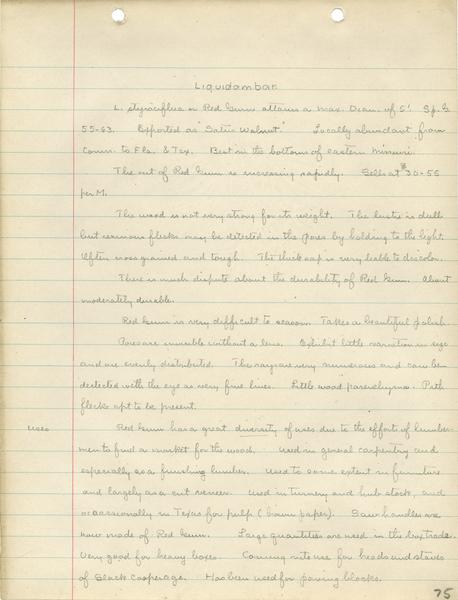 Liquidambar.
L. styraciflua or Red Gum attains a max. Diam. of 5'. Sp. G
55-63. Exported as "Satin Walnut." Locally abundant from
Conn. to Fla. & Tex. Best in the bottoms of eastern Missouri.
The cut of Red Gum is increasing rapidly. Sells at $30-55
per M.
The wood is not very strong for its weight. The lustre is dull
but resinous flecks may be detected in the pores by holding to the light.
Often cross grained and tough. The thick sap is very liable to discolor.
There is much dispute about the durability of Red Gum. About
moderately durable.
Red Gum is very difficult to season. Takes a beautiful polish.
Pores are invisible without a lens. Exhibit little variation in size
and are evenly distributed. The rays are very numerous and can be
detected with the eye as very fine lines. Little wood parenchyma. Pith
flecks apt to be present.
uses Red Gum has a great diversity of uses due to the efforts of lumber-
men to find a market for the wood. Used in general carpentry and
especially as a finishing lumber. Used to some extent in furniture
and largely as a cut veneer. Used in turnery and hub stock, and
occassionally in Texas for pulp (brown paper). Saw handles are
now made of Red Gum. Large quantities are used in the box trade.
Very good for heavy boxes. Coming into use for heads and staves
of Slack Cooperage. Has been used for paving blocks.
75